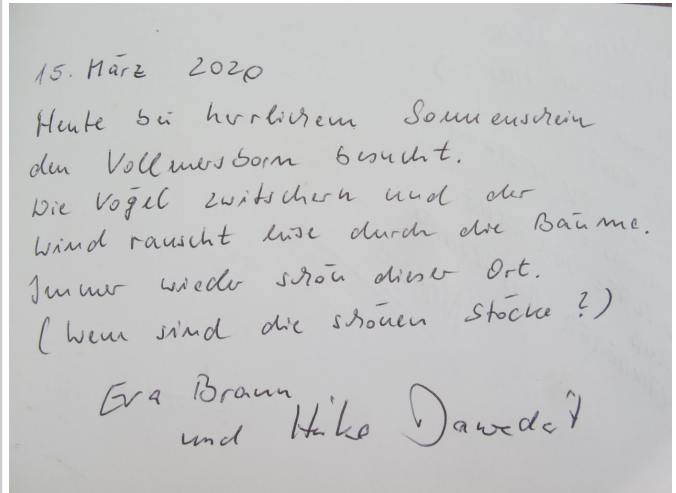 15. März 2020
Heute bei herrlichem Sonnenschein
den Vollmersborn besucht.
Die Vögel zwitschern und der
Wind rauscht leise durch die Bäume.
Immer wieder schön dieser Ort.
(Wem sind die schönen Stöcke?)
Eva Braun
und Heike Dawedeit